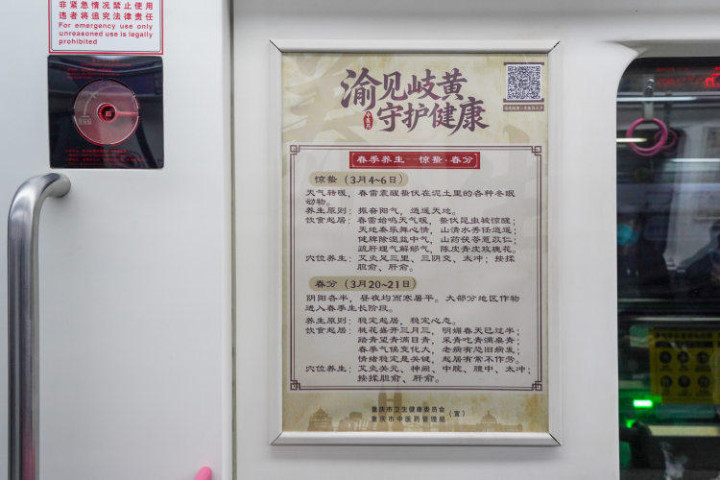 非紧急情况禁止使用
违者将追究法律责任
For emergency use only
unreasoned use is legally
prohibited
渝见岐黄
守护健康
春季养生—惊蛰·春分
惊蛰（3月4~6日）
天气转暖，春雷震醒蛰伏在泥土里的各种冬眠
动物。
养生原则：振奋阳气，通达天地。
饮食起居：春雷始鸣天气暖，蛰伏昆虫被惊醒；
天地春乐舞心情，山清水秀任逍遥；
健脾除湿益中气，山药茯苓薏苡仁；
疏肝理气解郁气，陈皮青皮玫瑰花。
穴位养生：艾灸足三里、三阴交、太冲；按揉
胆俞、肝俞。
春分（3月20~21日）
阴阳各半，昼夜均而寒暑平。大部分地区作物
进入春季生长阶段。
养生原则：稳定起居，稳定心态。
饮食起居：桃花盛开三月三，明媚春天已过半；
踏青望青满目青，采青吃青满桌青；
春季气候变化大，老病有恐旧病发；
情绪稳定是关键，起居有常不作劳。
穴位养生：艾灸关元、神阙、中脘、膻中、太冲；
按揉胆俞、肝俞。
重庆市卫生健康委员会
重庆市中医药管理局
（宣）